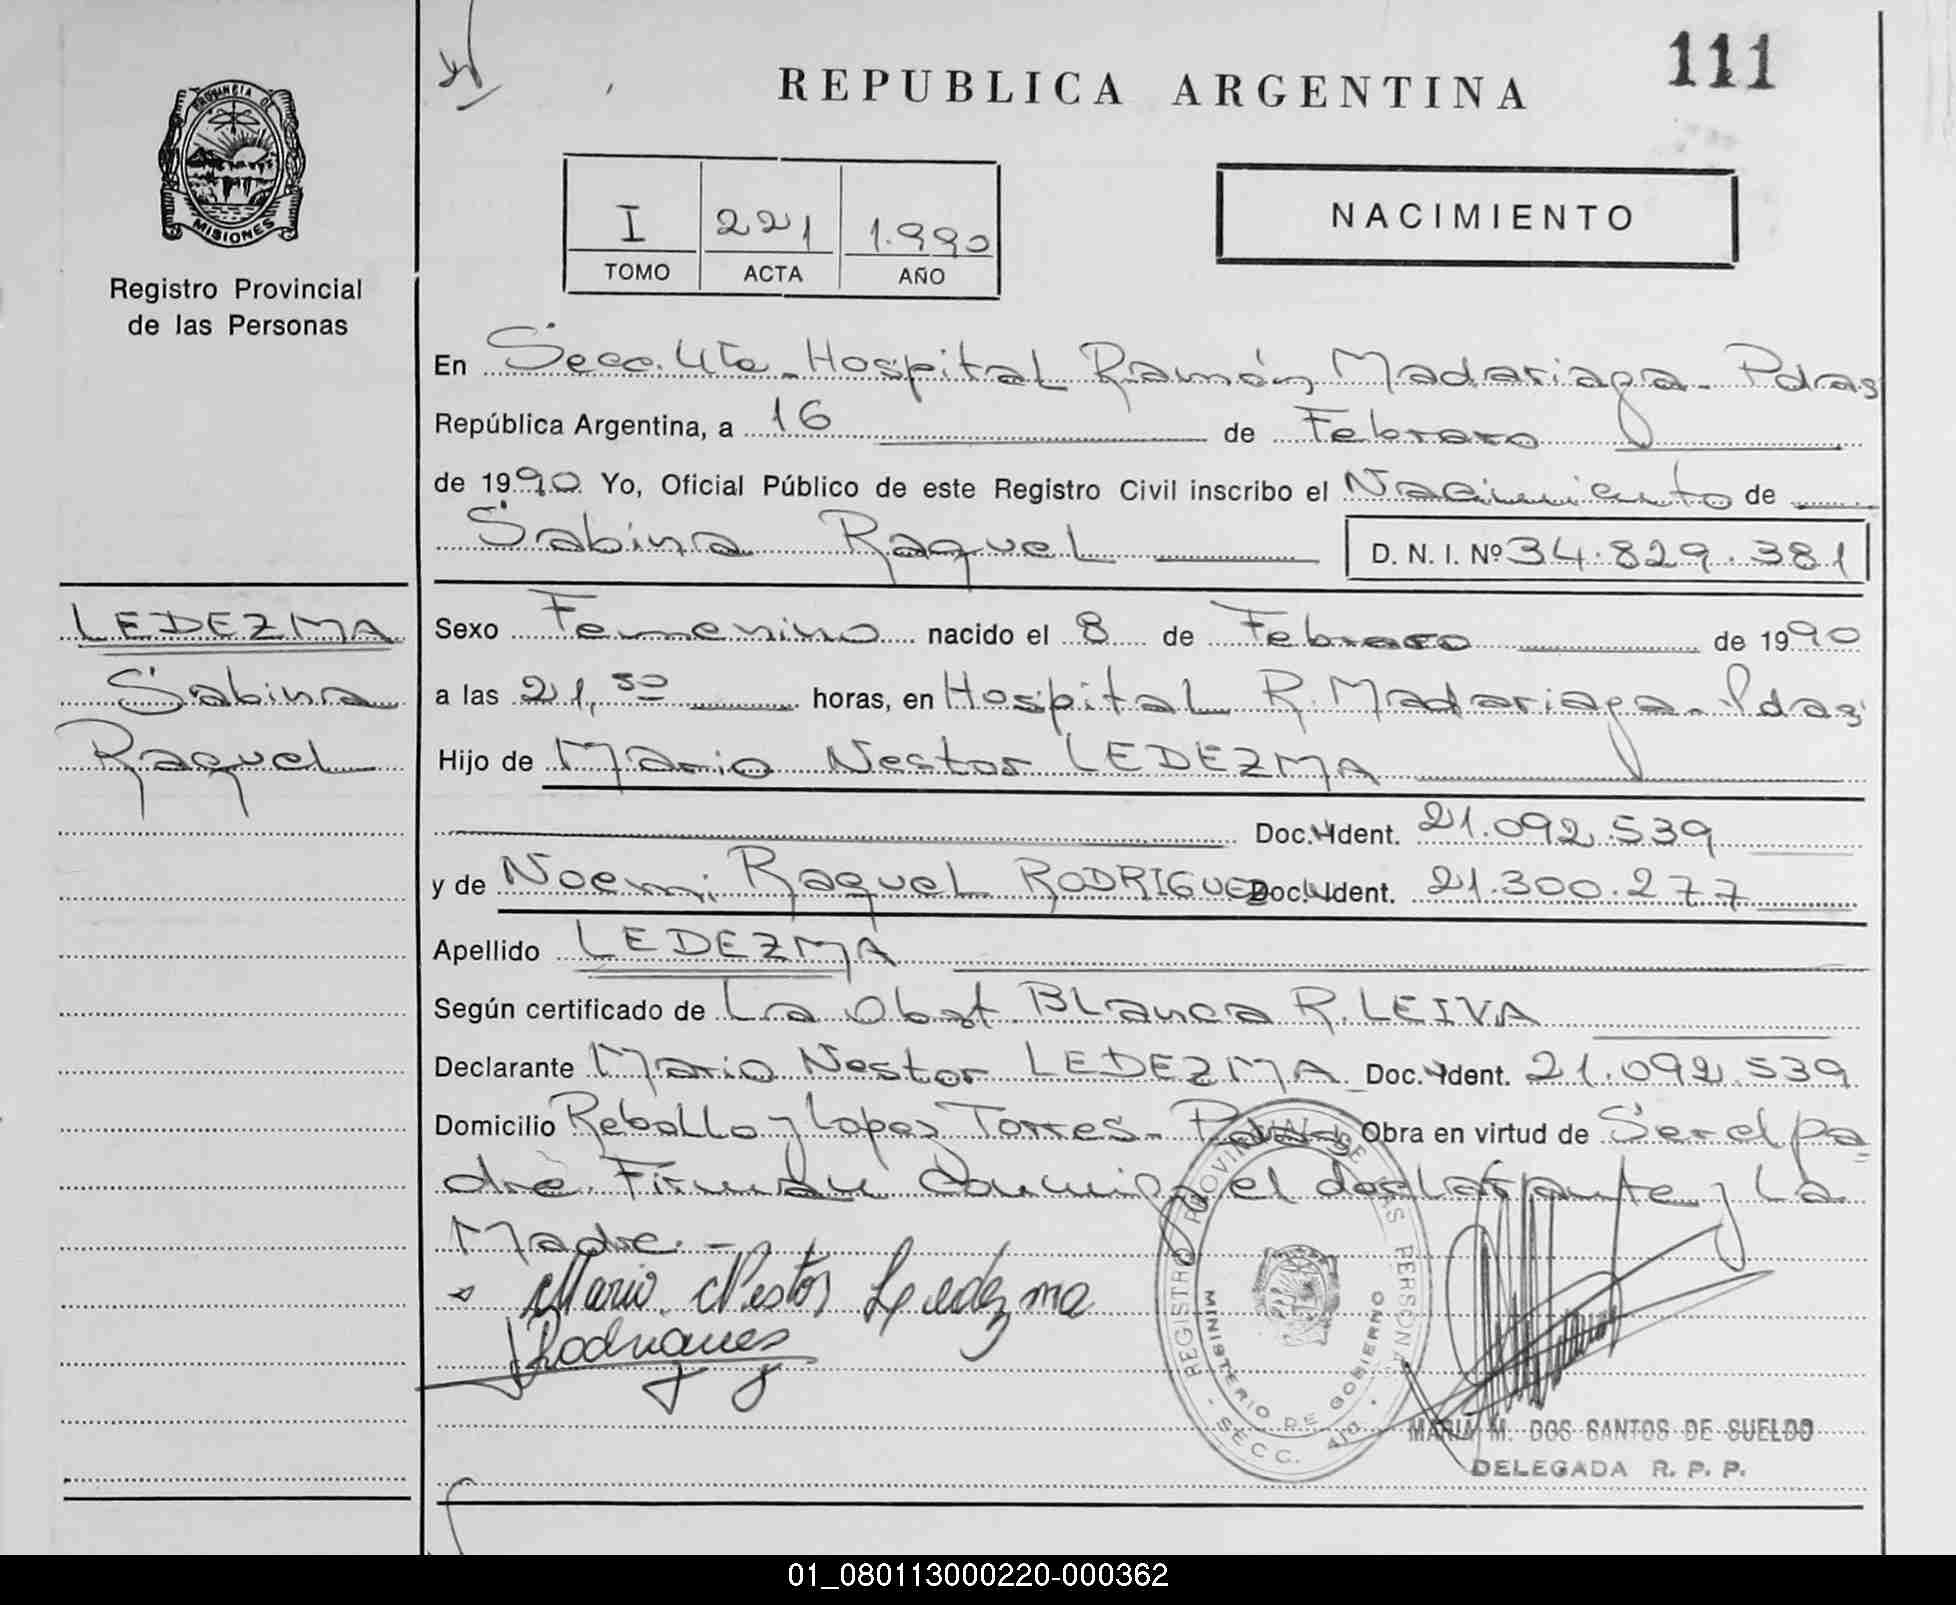 111
REPUBLICA ARGENTINA
PROVINCIA DE
MISIONES
Registro Provincial
de las Personas
NACIMIENTO
I 221 1.990
TOMO ACTA AÑO
En Secc. 4ta - Hospital Ramón Madariaga - Pdas
República Argentina, a 16 de Febrero
de 1990 Yo, Oficial Público de este Registro Civil inscribo el Nacimiento de
Sabina Raquel D. N. I. Nº 34.829.381
LEDEZMA
Sabina
Raquel
Sexo Femenino nacido el 8 de Febrero de 1990
a las 21,50 horas, en Hospital R. Madariaga - Pdas
Hijo de Mario Nestor LEDEZMA
Doc. Ident. 21.092.539
y de Noemi Raquel RODRIGUEZ Doc. Ident. 21.300.277
Apellido LEDEZMA
Según certificado de La Obst Blanca R. LEIVA
Declarante Mario Nestor LEDEZMA Doc. Ident. 21.092.539
Domicilio Rebollo y Lopez Torres - Pdas Obra en virtud de Ser el pa
dre. Firman conmigo el declarante y La
Madre. -
Mario Nestor Ledezma
Rodrigues
REGISTRO PROVINCIAL DE LAS PERSONAS
MINISTERIO DE GOBIERNO
- SECC. 4ta. -
MARIA M. DOS SANTOS DE SUELDO
DELEGADA R. P. P.
01_080113000220-000362